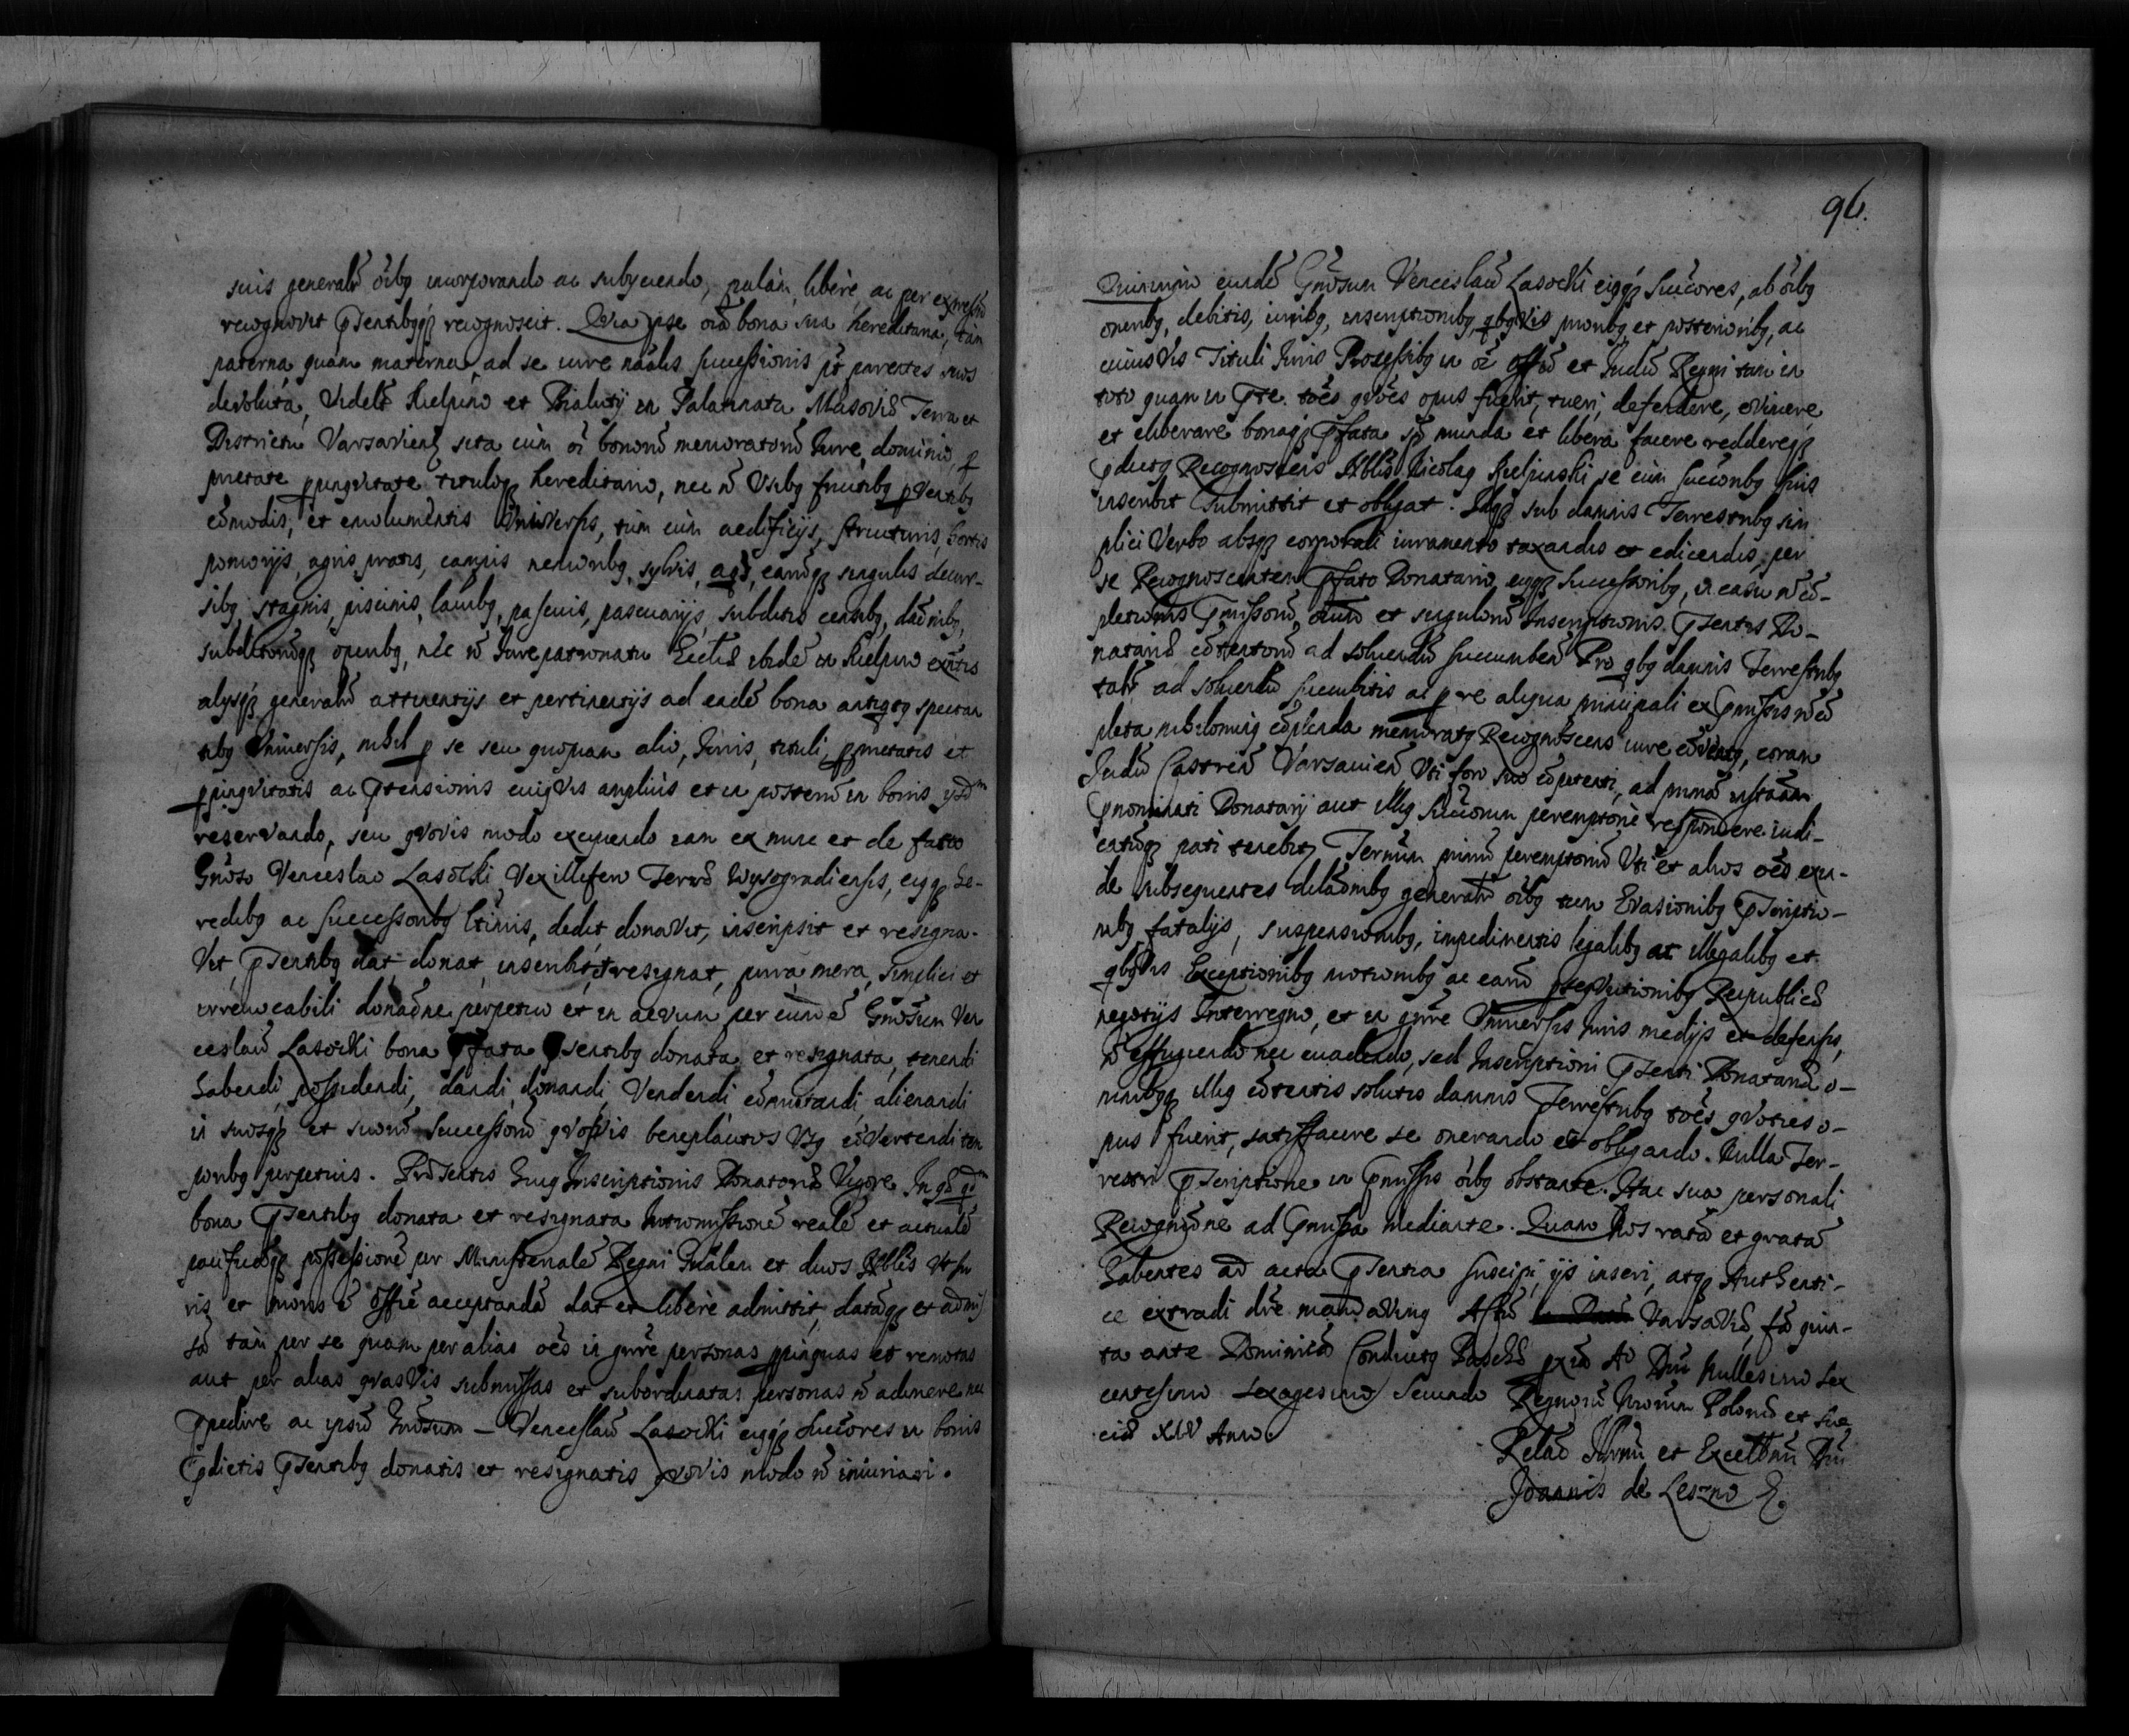 suis generalr̃ oĩbq incorporando ac subijciendo, palàm, liberè, ac per expressũ
recognovit p̃sentibqq́ recognoscit. Quia ipse oĩa bona sua hereditaria, tàm
paterna, quam materna, ad se iure nãalis successionis p̃t parentes suos
devoluta, videlt̃ Kielpino et Bialuty in Palatinatu Masoviæ Terra et
Districtu Varsavien̄ sita cùm oĩ bonorũ memoratorũ Iure, dominio p
prietate ppinqvitate tituloqꝫ hereditario, nec ñ Usibq fructibq pventibq
cõmodis, et emolumentis Vniversis, tùm cùm aedificijs, structuris, hortis
pomorijs, agris pratis, campis nemoribq, sylvis, aqs, earũqꝫ singulis decur-
sibq, stagnis, piscinis, lacubq, pascuis, pascuarijs, subditis censibq, dãonibq,
subditorũqꝫ operibq, nec ñ Iurepatronatu Eccliæ ibidẽ in Kielpino exñtis
alijsqꝫ generalr̃ attinentijs et pertinentijs ad eadẽ bona antiqtq spectan
tibq Vniversis, nihil p se seu quopiam alio, Iuris, tituli, pprietatis et
ppinqvitatis ac p̃tensionis cuiqvis ampliùs et in posterũ in bonis ijsdm̃
reservando, seu qvovis modo excipiendo iam ex nunc et de facto
Gñoso Venceslao Lasocki Vexillifero Terræ Wyszogradiensis, eiqqꝫ he-
redibq ac successoribq ltimis, dedit donavit, inscripsit et resigna-
vit, p̃sentibq dat donat, inscribit, et resignat, pura, mera, simplici et
irrevocabili donãone perpetuo et in aevum per eundẽ Gñosum Ven
ceslaũ Lasocki bona p̃fata p̃sentibq donata et resignata, tenendi
habendi, possidendi, dandi, donandi, Vendendi cõmutandi, alienandi
in suosqꝫ et suorũ successorũ qvosvis beneplacitos Usq cõvertendi tem
poribq perpetuis. Præsentis huiq Inscriptionis Donatoriæ Vigore In qæ qdm̃
bona p̃sentibq donata et resignata Intromissionẽ realẽ et actualẽ
pacificãqꝫ possessionẽ per Ministerialẽ Regni Gñalem et duos Nbles Ut su
ris et moris ẽ offie acceptandã dat et liberè admittit, datãqꝫ et admis
sã tàm per se quam per alias oẽs in gñre personas ppinquas et remotas
aut per alias qvasvis submissas et subordinatas personas ñ adimere nec
p̃pedire ac ipsũ Gñosum — Venceslaũ Lasocki eiqqꝫ succores in bonis
p̃dictis p̃sentibq donatis et resignatis qvovis modo ñ iniuriari.

96.
Quinimo eundẽ Gñosum Venceslaũ Lasocki eiqqꝫ succores, ab oĩbq
oneribq, debitis, iuribq, inscriptionibq, qbqvis prioribq et posterioribq, ac
cuiusvis Tituli Iuris Processibq in oĩ offõ et Iudũ Regni tam in
toto quam in pte. toẽs qvoẽs opus fuerit, tueri, defendere, evincere,
et eliberare bonaqꝫ p̃fata sp̃ munda et libera facere reddereqꝫ
p̃dictq Recognoscens Nblis Nicolaq Kielpinski se cùm succoribq suis
inscribit submittit et obligat. Idqꝫ sub damnis Terrestribq sim
plici Verbo absqꝫ corporali iuramento taxandis et edicendis, per
se Recognoscentem p̃fato Donatario, eiqqꝫ successoribq, in casu ñ cõ-
pletionis p̃missorũ, oĩum et singulorũ Inscriptionis p̃sentis Do-
natariæ cõtentorũ ad solvendũ succumben̄ Pro qbq damnis Terrestribq
talr̃ ad solvendũ succubitis ac p re aliqua principali ex p̃missis ñ cõ
pleta nihilominq cõplenda memoratq Recognoscens iure cõventq, coram
Iudũ Castren̄ Varsavien̄ Uti foro suo cõpetenti, ad primã instãam
p̃nominati Donatarij aut illiq succorum peremptoriè respondere iudi-
catũqꝫ pati tenebitꝫ Termĩum primũ peremptoriũ Uti et alios oẽs exin-
de subsequentes dilãonibq generalr̃ oĩbq tum Evasionibq p̃scriptio-
nibq fatalijs, suspensionibq, impedimentis legalibq ac illegalibq et
qbqvis Exceptionibq motionibq ac earũ psequutionibq Reipublicæ
negotijs Interregno, et in gñre Vniversis Iuris medijs et defensis,
ñ effugiendo nec evadendo, sed Inscriptioni p̃senti Donatariæ o-
mnibqqꝫ illiq cõtentis solutis damnis Terrestribq toẽs qvoties o-
pus fuerit, satisfacere se onerando et obligando. Nulla Ter-
restri p̃scriptione in p̃missis oĩbq obstante. Hac sua personali
Recognõne ad p̃missa mediante. Quam Nos ratã et gratã
habentes ad acta p̃sentia suscipi, ijs inseri, atqꝫ Authenti-
ce extradi dre mandavimq Actũ Varsaviæ, fã quin-
ta ante Dominicã Conductq Paschæ pxiã Aõ Dñi Millesimo sex
centesimo sexagesimo Secundo Regnorũ Nrorum Poloniæ et Sue
ciæ XIV Anno.
Relaõ Illrmi et Excellmi Dñi
Joannis de Leszno